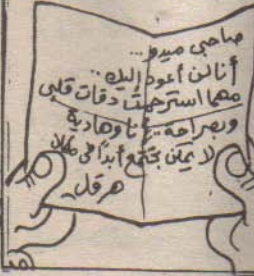 صاحبى ميدو...
أنا لن أعود إليك..
مهما استرحمت دقات قلبى
وبصراحة .. أنا وهادية
لا يمكن نجتمع أبداً فى مكان
هرقل